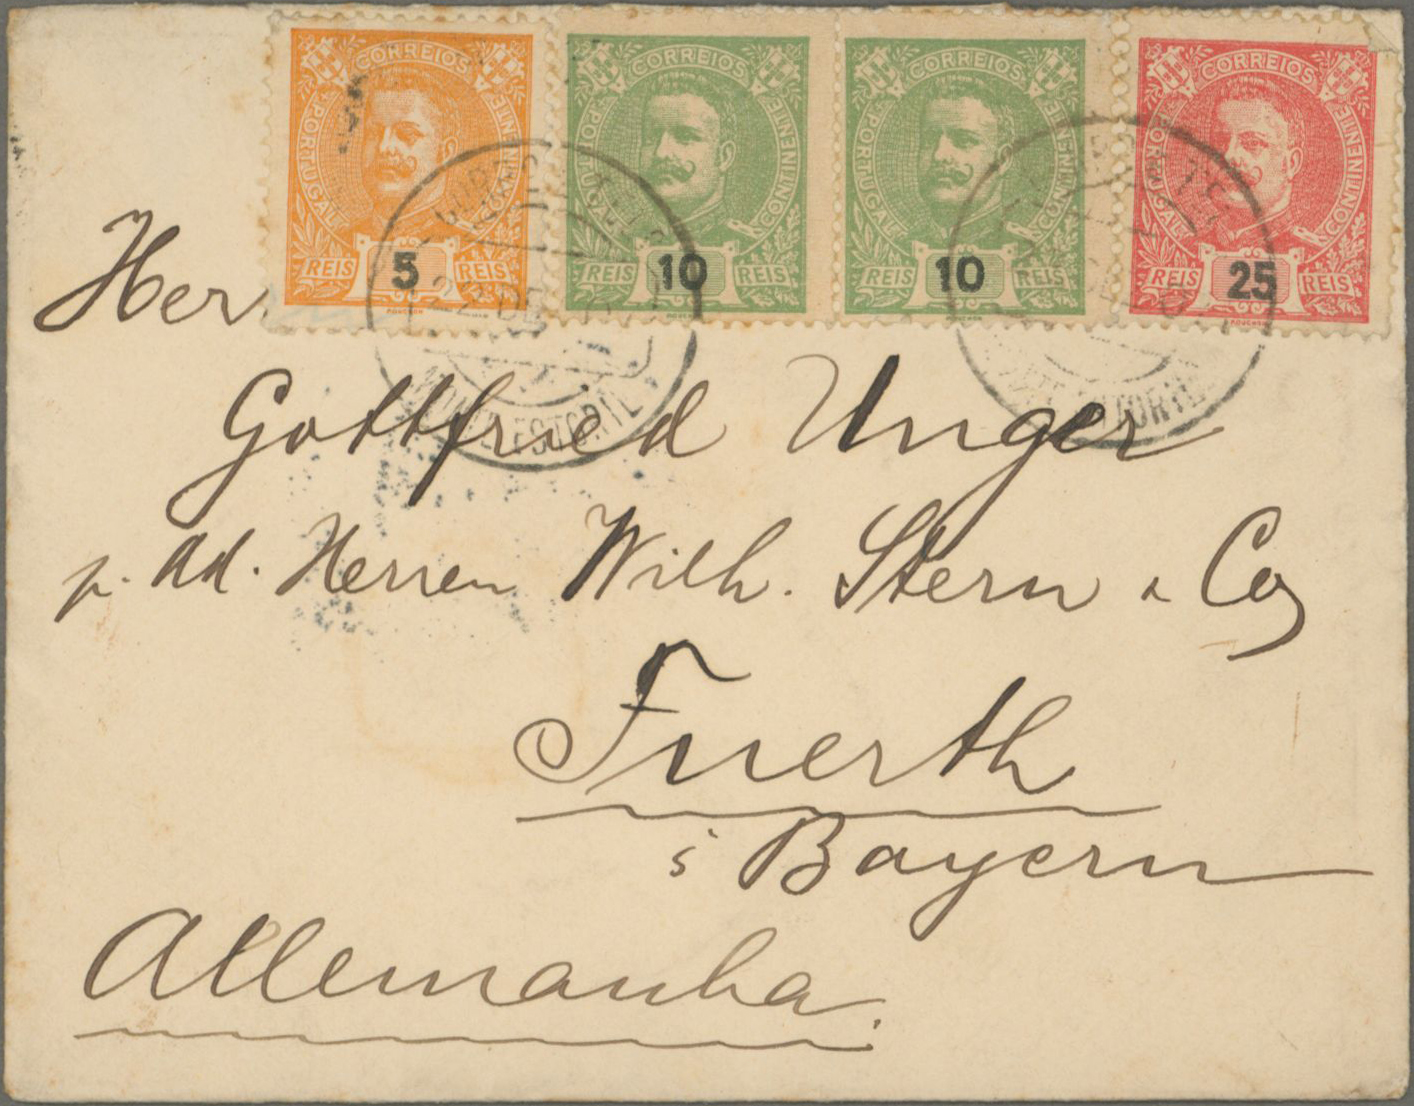 CORREIOS CORREIOS CORREIOS CORREIOS
PORTUGAL CONTINENTE PORTUGAL CONTINENTE PORTUGAL CONTINENTE PORTUGAL CONTINENTE
REIS 5 REIS REIS 10 REIS REIS 10 REIS REIS 25 REIS
MOUCHON MOUCHON MOUCHON MOUCHON
22 DE
ESTORIL
Herr
Gottfried Unger
p. Ad. Herren Wilh. Stern & Co
Fuerth
i Bayern
Allemanha.